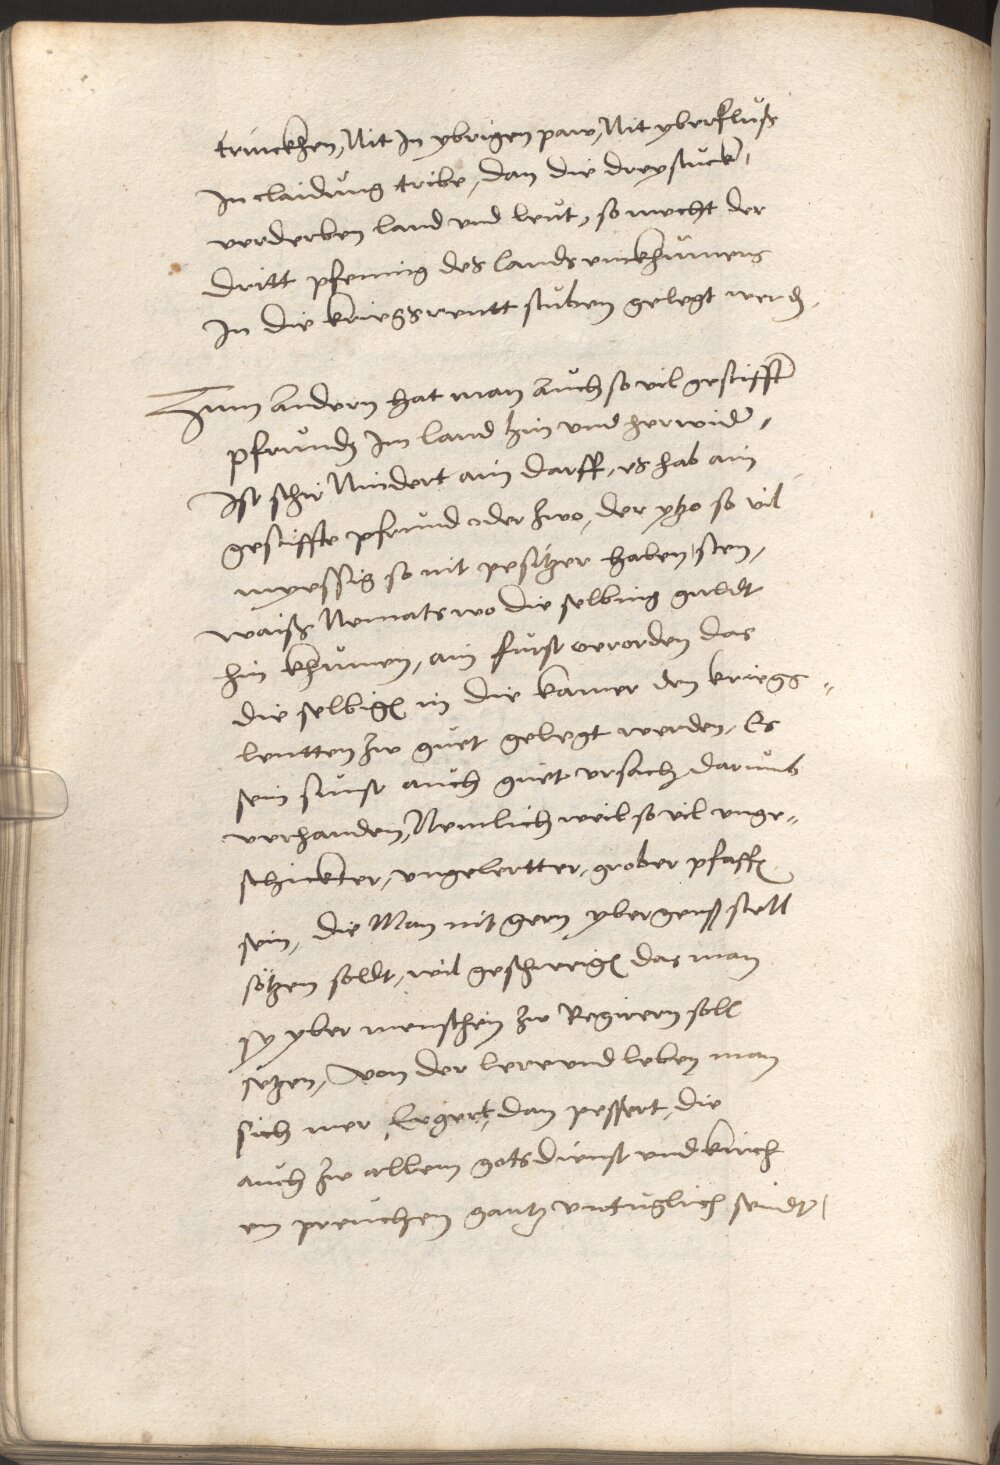 trinckhen, Nit In ybrigen paw, Nit yberfluß
In claidung tribe, dan die drey stuckh
verderben land vnd leut, so mecht der
dritt pfening des lands einkhumens
In die kriegs rentt stuben gelegt werden
Zum andern hat man auch so vil gestifft
pfrundt Im land hin und herwider
Ist schir Nindert ain darff, es hab ain
gestiffte pfrund oder zwo, der ytzo so vil
myessig so nit pesitzer haben, sten,
waiß Nemants wo die selbing guldt
hin khumen, ain furst verorden das
die selbigen in die kamer den kriegs-
leutten zw guet gelegt werden, Es
sein sunst auch guet vrsach darumb
verhanden, Nemlich weil so vil unge-
schickter, vngelertter, grober pfaffen
sein, die Man nit gern yber genß stell
sötzen soldt, wil geschweigen das man
sy yber menschen zw Regirern soll
setzen, von der lere vnd leben man
sich mer Ergert, dan pessert, die
auch zw allem gotsdienst vnd kirch
en preuchen gantz vntuglich seindt